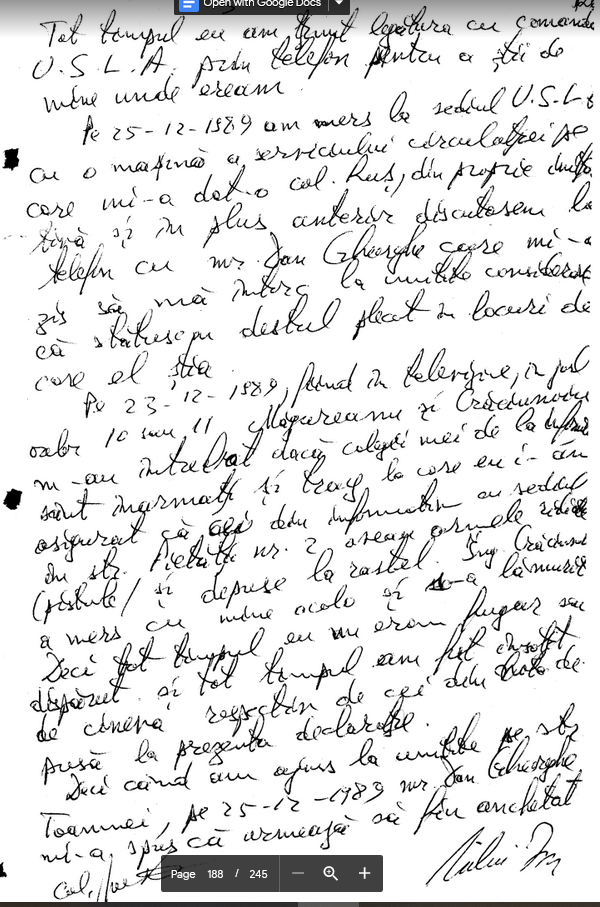 Open with Google Docs
Tot timpul eu am ținut legătura cu
U.S.L.A. prin telefon pentru a ști de
mine unde eram.
Pe 25-12-1989 am mers la sediul U.S.L.A
cu o mașină a serviciului circulației pe
care mi-a dat-o col. Ruș, din proprie
și în plus anterior discutasem la
telefon cu mr. Dan Gheorghe care mi-a
zis să mă întorc la unitate
că stătusem destul plecat în locuri de
care el știa.
Pe 23-12-1989, fiind în televiziune, în jurul
orelor 10 sau 11 Măgureanu și
m-au întrebat dacă colegii mei de la
sînt înarmați și trag la care eu i-am
asigurat că cei din informativ cu sediul
în str. nr. 2 aveau armele
(pistole) și depuse la rastel. Ing.
a mers cu mine acolo și s-a lămurit
Deci tot timpul eu nu eram fugar sau
dispărut și tot timpul am fost însoțit
de cineva respectiv de cei din
pusă la prezenta declarație.
Deci când am ajuns la unitate pe str.
Toamnei, pe 25-12-1989 mr. Dan Gheorghe
mi-a spus că urmează să fiu anchetat
Page 188 / 245